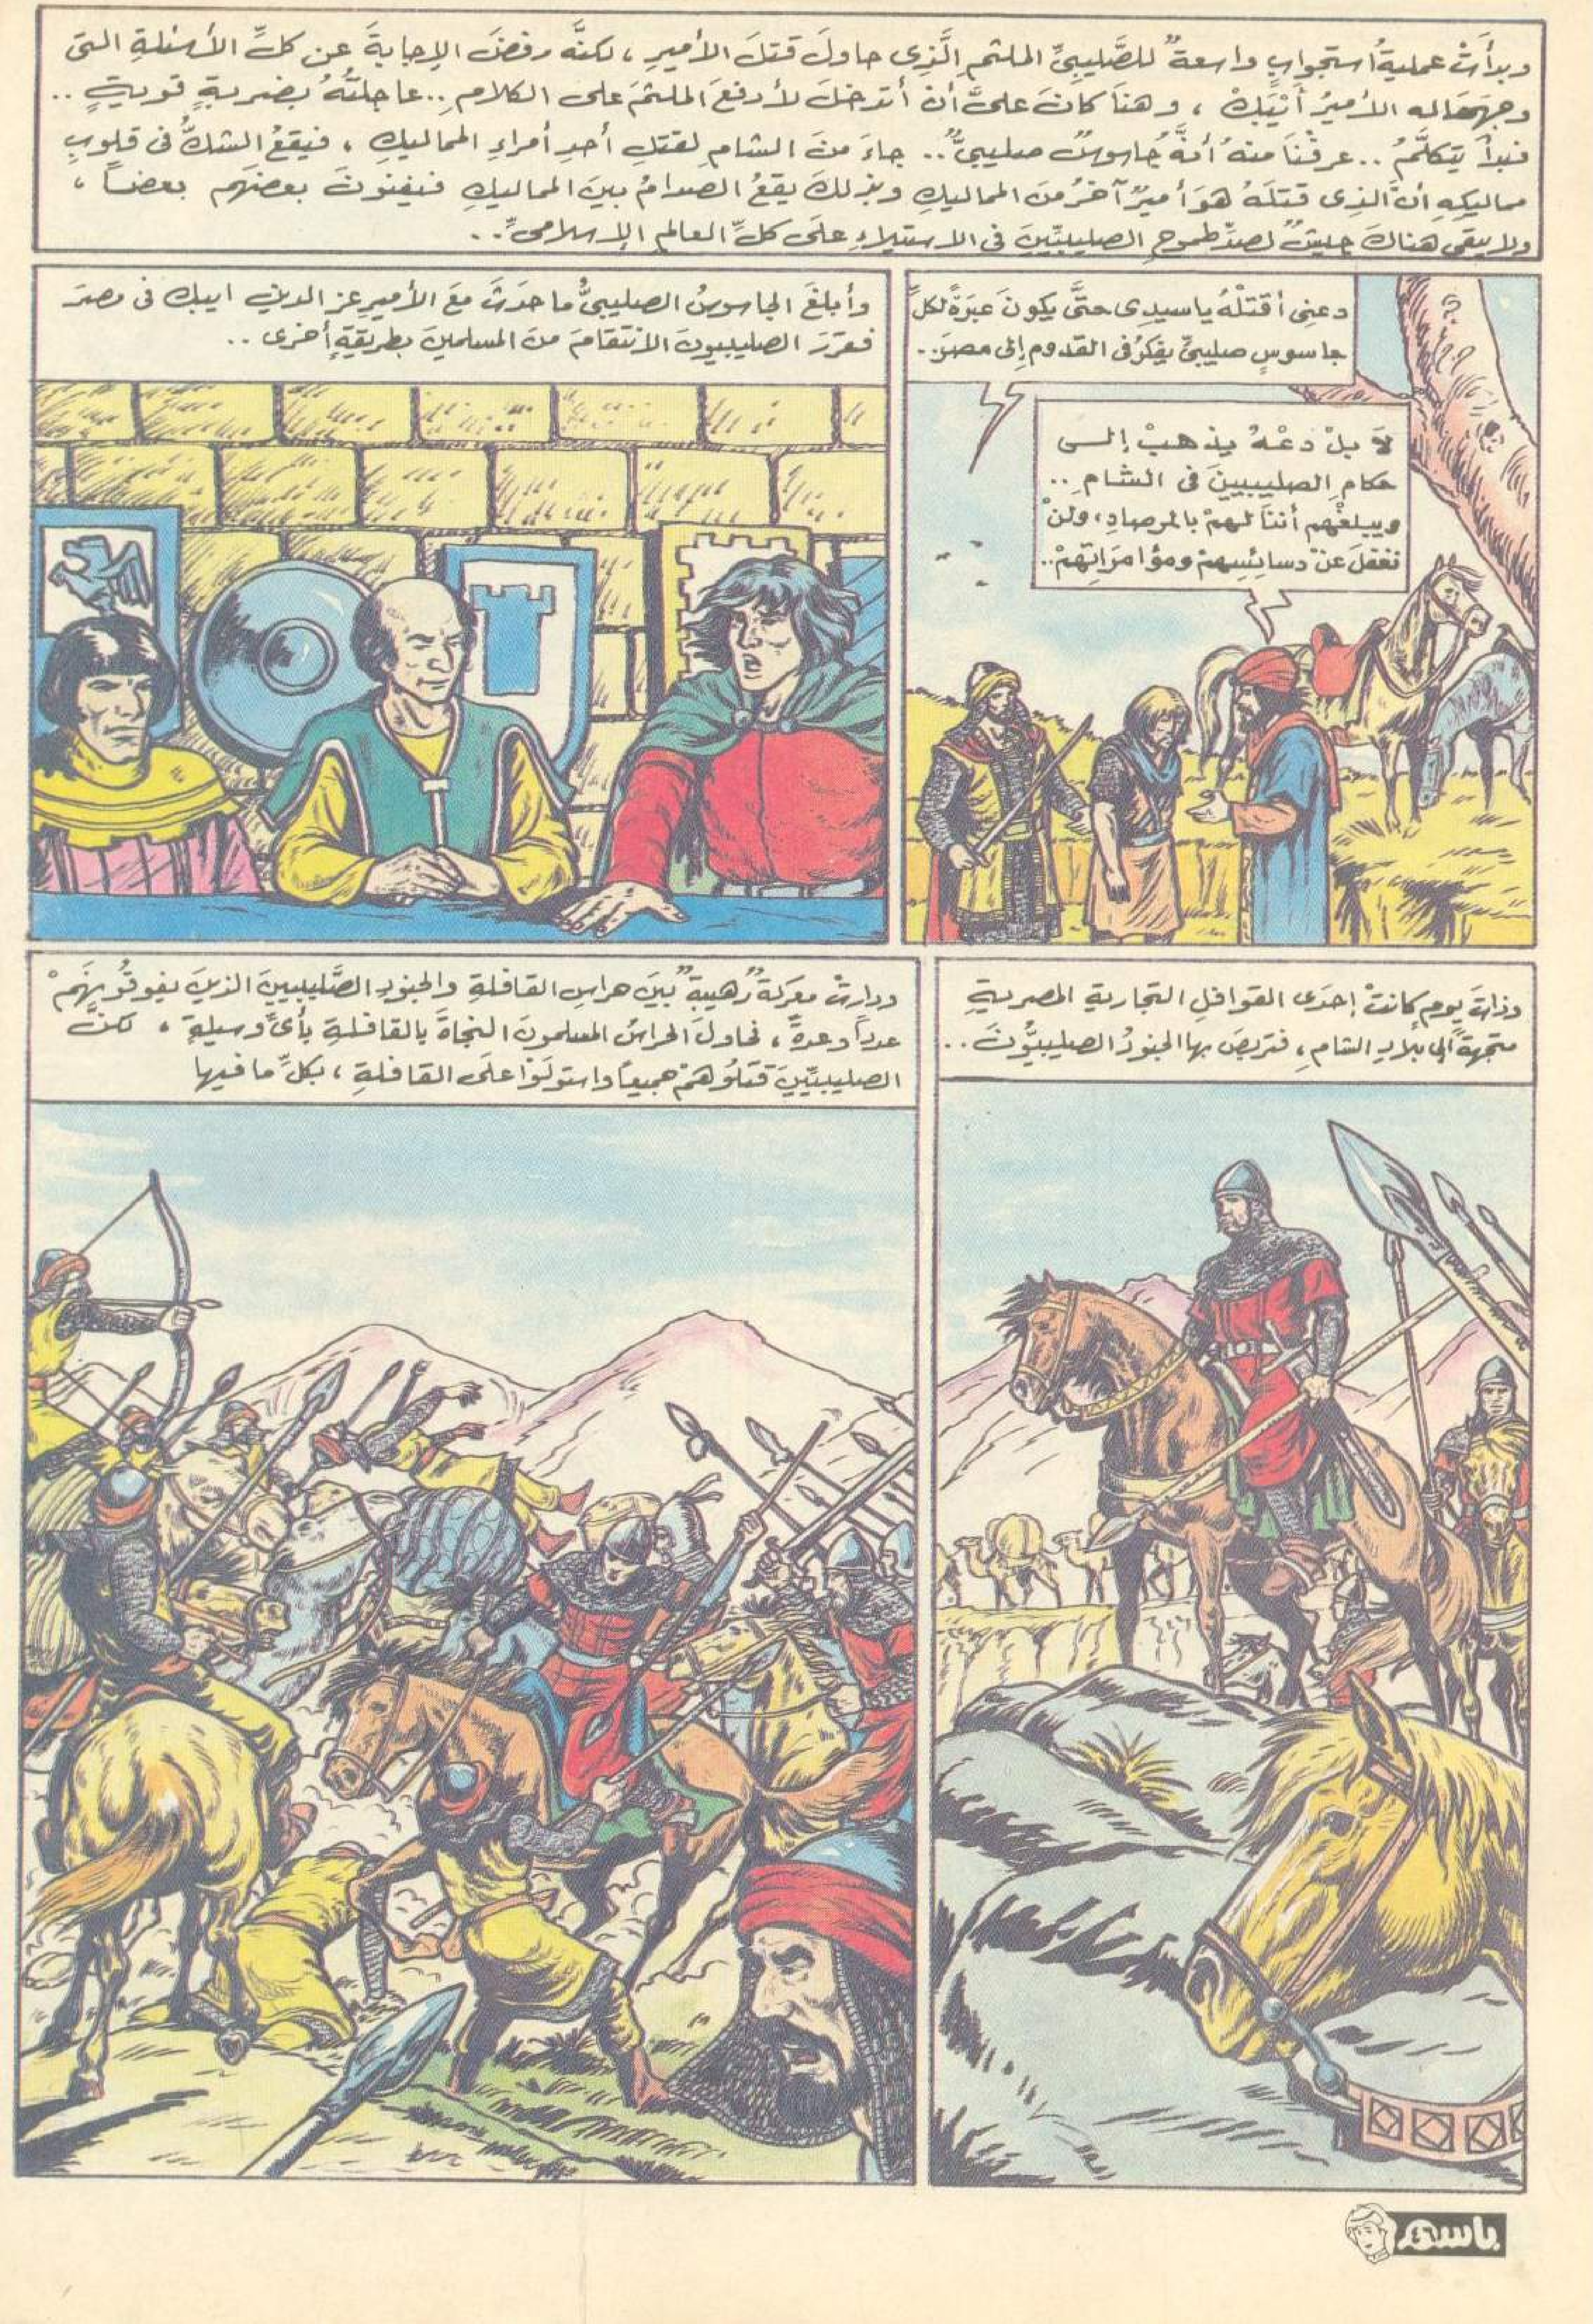 وبدأَتْ عمليةُ استجوابٍ واسعةٌ للصَّليبيِّ الملثمِ الَّذِى حاولَ قتلَ الأميرِ، لكنَّه رفضَ الإجابةَ عن كلِّ الأسئلةِ التى
وجهَهَا له الأميرُ أَيْبَكْ، وهنَا كانَ علىَّ أن أتدخلَ لأدفعَ الملثمَ على الكلامِ.. عاجلتُهُ بضربةٍ قويةٍ..
فبدأَ يتكلَّمُ.. عرفْنَا منهُ أنَّهُ جاسوسٌ صليبىٌّ.. جاءَ منَ الشامِ لقتلِ أحدِ أمراءِ المماليكِ، فيقعُ الشكُّ فى قلوبِ
مماليكِهِ أنَّ الذِى قتلَهُ هوَ أميرٌ آخرُ منَ المماليكِ وبذلكَ يقعُ الصدامُ بينَ المماليكِ فيفنونَ بعضَهم بعضاً،
ولا يبقى هناكَ جيشٌ لصدِّ طموحِ الصليبيِّينَ فى الاستيلاءِ علَى كلِّ العالمِ الإسلامىِّ..
دعنِى أقتلْهُ ياسيدِى حتَّى يكونَ عبرَةً لكلِّ
جاسوسٍ صليبىٍّ يفكرُ فى القدومِ إلى مصرَ.
لاَ بلْ دعْهُ يذهبْ إلى
حكامِ الصليبيينَ فى الشامِ..
ويبلغْهم أننَا لهمْ بالمرصادِ، ولنْ
نغفلَ عنْ دسائِسِهمْ ومؤامَرَاتِهمْ..
وأبلغَ الجاسوسُ الصليبىُّ ما حدَثَ معَ الأميرِ عز الدين ايبك فى مصرَ
فقررَ الصليبيونَ الانتقامَ منَ المسلمينَ بطريقةٍ أخرى..
وذاتَ يومٍ كانتْ إحدَى القوافلِ التجاريةِ المصريةِ
متجهةً الى بلادِ الشامِ، فتربصَ بها الجنودُ الصليبيُّونَ..
ودارتْ معركةٌ رهيبةٌ بينَ حراسِ القافلةِ والجنودِ الصَّليبيينَ الذينَ يفوقُونَهمْ
عدداً وعدةً، فحاولَ الحراسُ المسلمونَ النجاةَ بالقافلةِ بأىِّ وسيلةٍ، لكنَّ
الصليبيِّينَ قتلُوهُمْ جميعاً واستولَوْا علَى القافلةِ، بكلِّ ما فيها
باسم